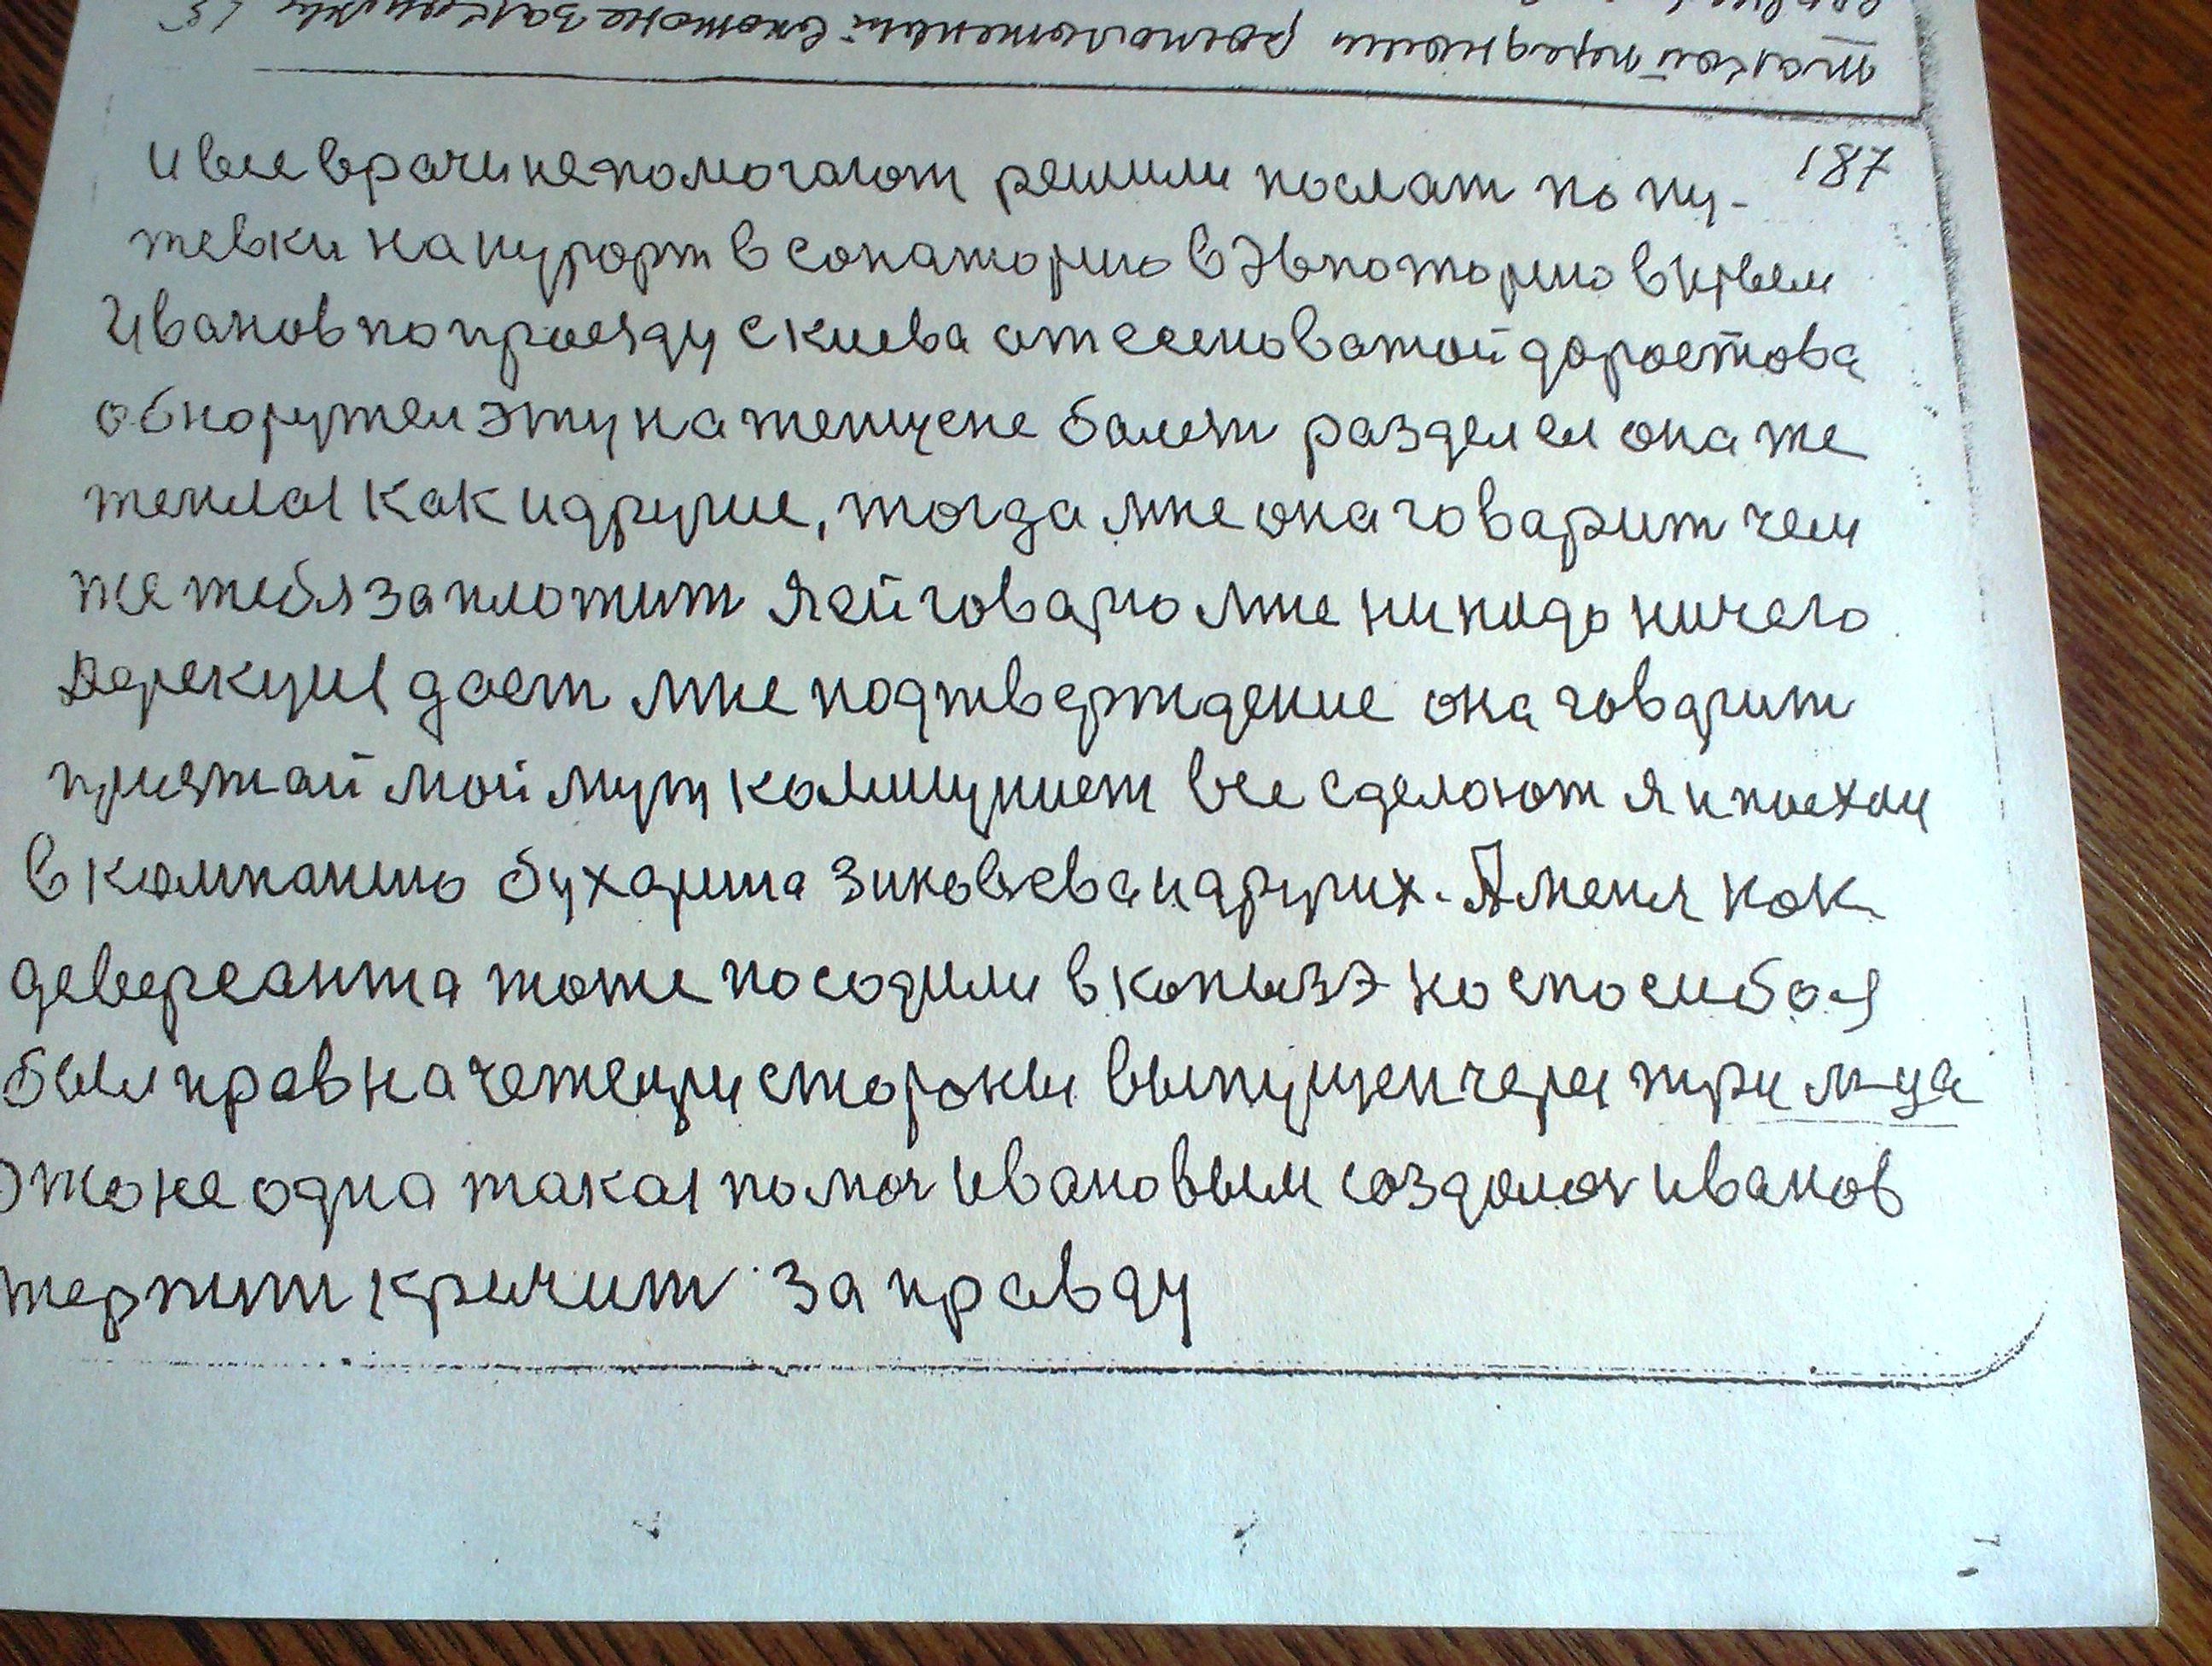 187
и все врачи не помогают решили послат по пу-
тевки на курорт в сонаторию в Эвпоторию в Крым
Иванов по проезду с киева от ссыноватой до ростова
обноружел эту на женщене болезн разделел она же
тенлая как и другие, тогда мне она говарит чем
же тебя заплотит Я ей говарю мне ни нидо ничего
дает мне подтверждение она говарит
приезжай мой муж коммунист все сделоют Я и поехал
в компанию бухарина Зиновьева и других. А меня как
деверсанта тоже посодили в копызэ но спосибо я
был прав на четыри стороны выпущен через три м-ца
Это не одна такая помоч Ивановым создалоч иванов
терпит кричит за правду